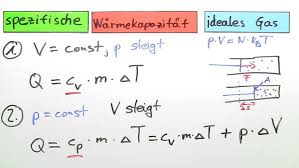 spezifische Wärmekapazität ideales Gas
p·V = N·k_B T
1. V = const, p steigt
F A
Q = c_v · m · ΔT
Δs
2. p = const V steigt
Q = c_p · m · ΔT = c_v · m · ΔT + p · ΔV